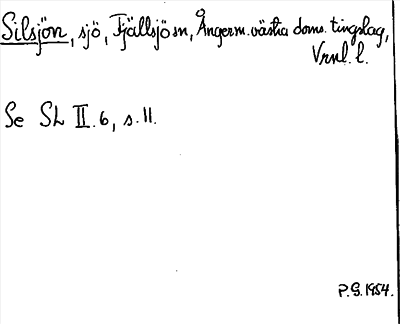 Silsjön, sjö, Fjällsjö sn, Ångerm. västra doms. tingslag,
Vrnl. l.
Se SL II. 6, s. 11.
P.G. 1954.